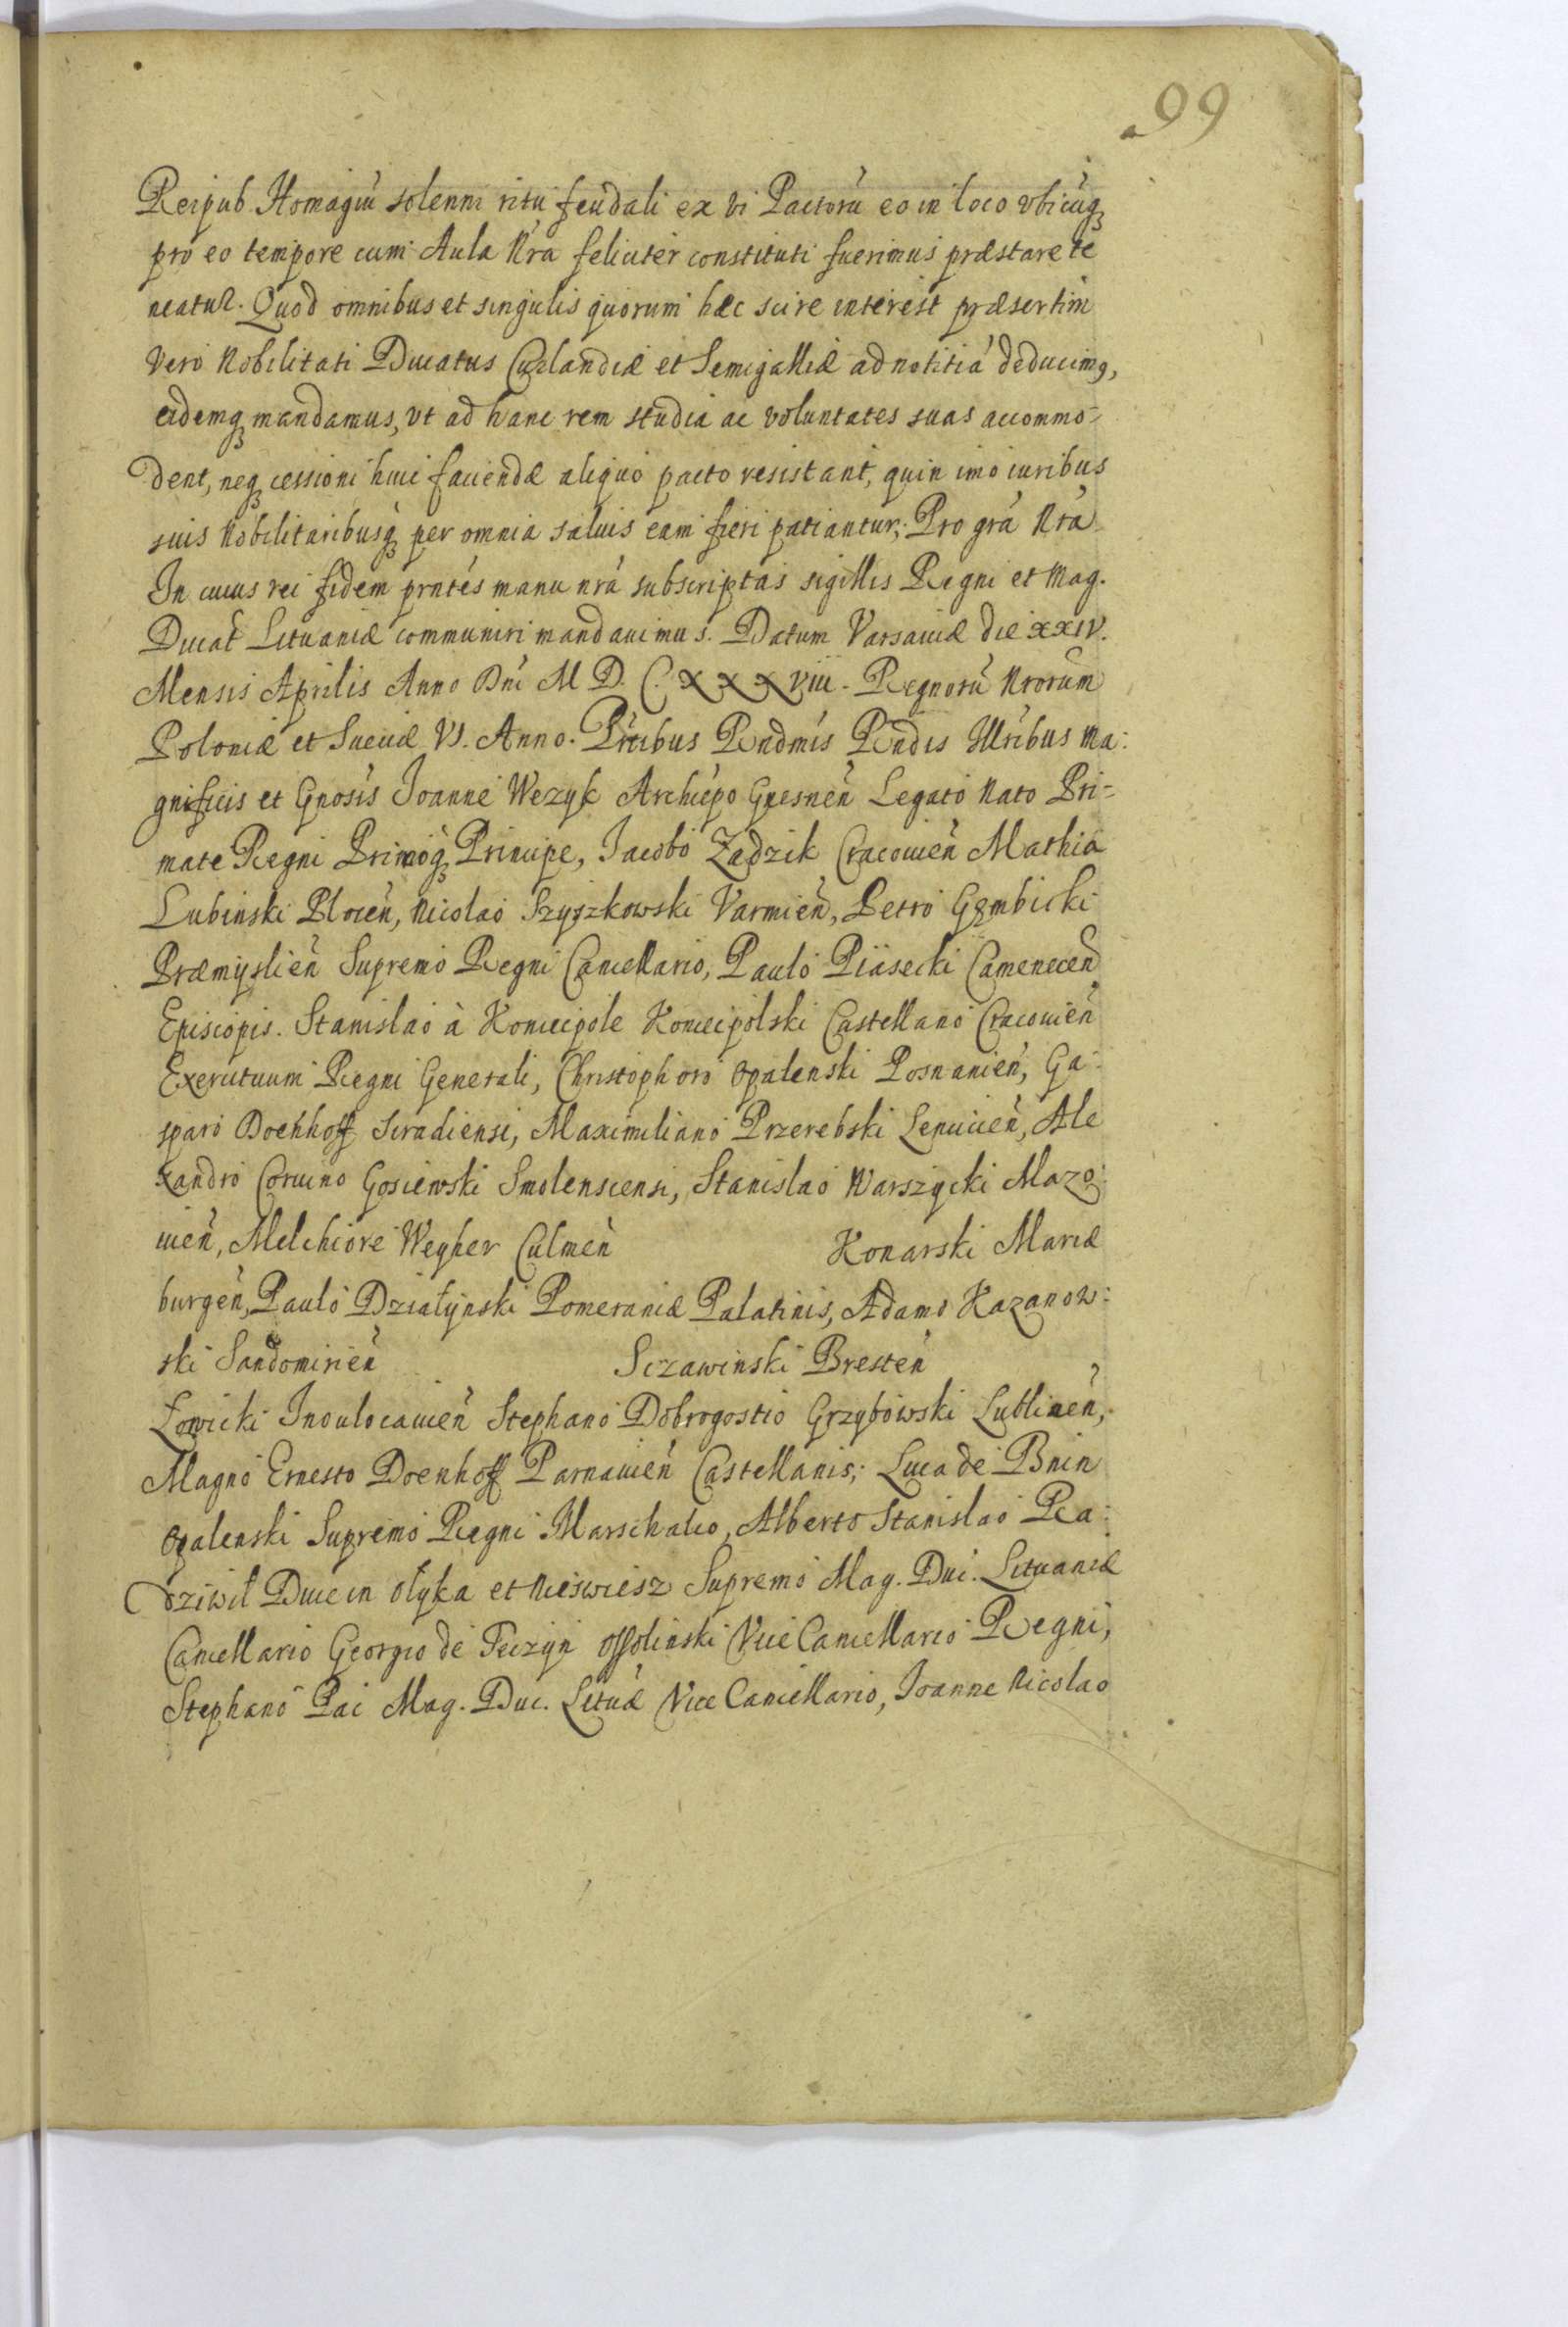 99
Reipub. Homagiū solenni ritu feudali ex vi Pactorū eo in loco vbicūq̨
pro eo tempore cum Aula Nra feliciter constituti fuerimus præstare te
neatur. Quod omnibus et singulis quorum hæc scire interest præsertim
vero Nobilitati Ducatus Curlandiæ et Semigalliæ ad notitiā deducimꝰ,
eidemq̨ mandamus, vt ad hanc rem studia ac voluntates suas accommo-
dent, neq̨ cessioni huic faciendæ aliquo pacto resistant, quin imo iuribus
suis Nobilitaribusq̨ per omnia saluis eam fieri patiantur, Pro grā Nrā
In cuius rei fidem prntes manu nrā subscriptas sigillis Regni et Mag.
Ducat Lituaniæ communiri mandauimus. Datum Varsauiæ die XXIV.
Mensis Aprilis Anno Dni M D. C. X X X viii. Regnorū Nrorum
Poloniæ et Sueciæ VI. Anno. Prntibus Rndmis Rndis Illribus Ma:
gnificis et Gnosis Joanne Wezyk Archiepo Gnesneñ Legato Nato Pri-
mate Regni Primoq̨ Principe, Jacobo Zadzik Cracouieñ Mathia
Lubinski Ploceñ, Nicolao Szyszkowski Varmieñ, Petro Gembicki
Præmyslieñ Supremo Regni Cancellario, Paulo Piasecki Cameneceñ
Episcopis. Stanislao à Koniecpole Koniecpolski Castellano Cracouieñ
Exercituum Regni Generali, Christophoro Opalenski Posnanieñ, Ga:
sparo Doenhoff Siradiensi, Maximiliano Przerebski Lenicieñ, Ale
xandro Coruino Gosiewski Smolenscensi, Stanislao Warszycki Mazo:
uieñ, Melchiore Weyher Culmeñ Konarski Mariæ
burgeñ, Paulo Działynski Pomeraniæ Palatinis, Adamo Kazanow:
ski Sandomirieñ Sczawinski Bresteñ
Łowicki Inoulocauieñ Stephano Dobrogostio Grzybowski Lublineñ,
Magno Ernesto Doenhoff Parnauieñ Castellanis, Luca de Bnin
Opalenski Supremo Regni Marschalco, Alberto Stanislao Ra:
dziwil Duce in Olyka et Nieswiesz Supremo Mag. Duc. Lituaniæ
Cancellario Georgio de Teczyn Ossolinski Vice Cancellario Regni,
Stephano Pac Mag. Duc. Lituæ Vice Cancellario, Joanne Nicolao